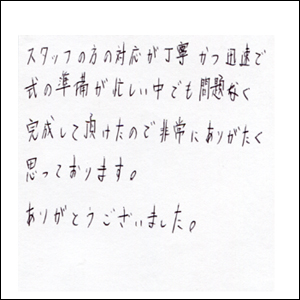 スタッフの方の対応が丁寧かつ迅速で
式の準備が忙しい中でも問題なく
完成して頂けたので非常にありがたく
思っております。
ありがとうございました。